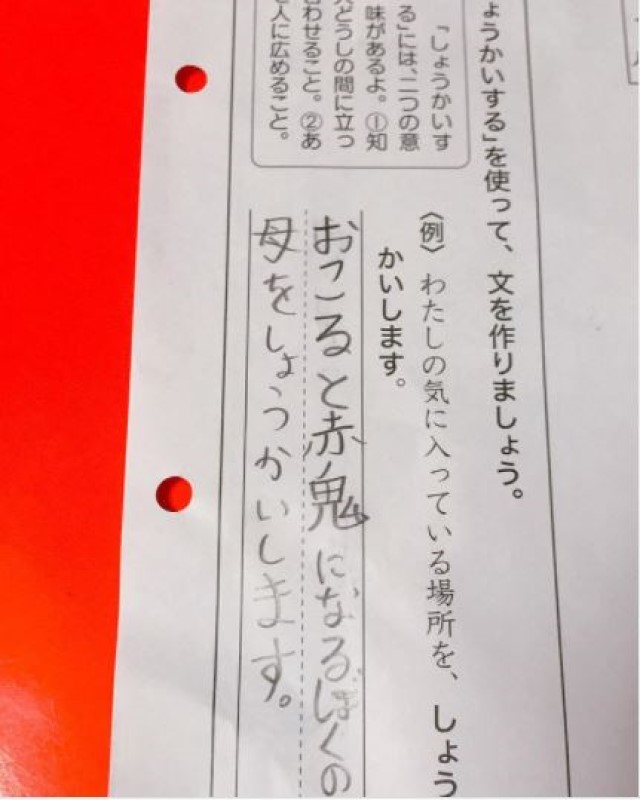 ょうかいする」を使って、文を作りましょう。
〈例〉わたしの気に入っている場所を、しょう
かいします。
「しょうかいす
る」には、二つの意
味があるよ。①知
人どうしの間に立っ
わせること。②あ
人に広めること。
おこると赤鬼になるぼくの
母をしょうかいします。